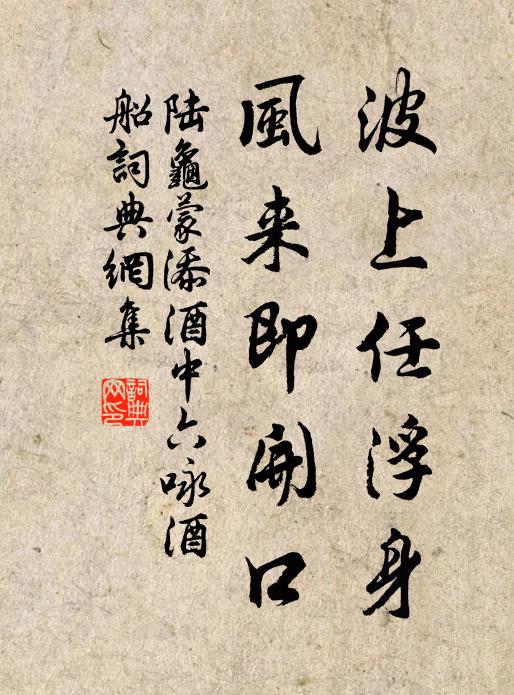 波上任浮身
風来即開口
陆龜蒙添酒中六咏酒
船詞典網集
詞典
网印